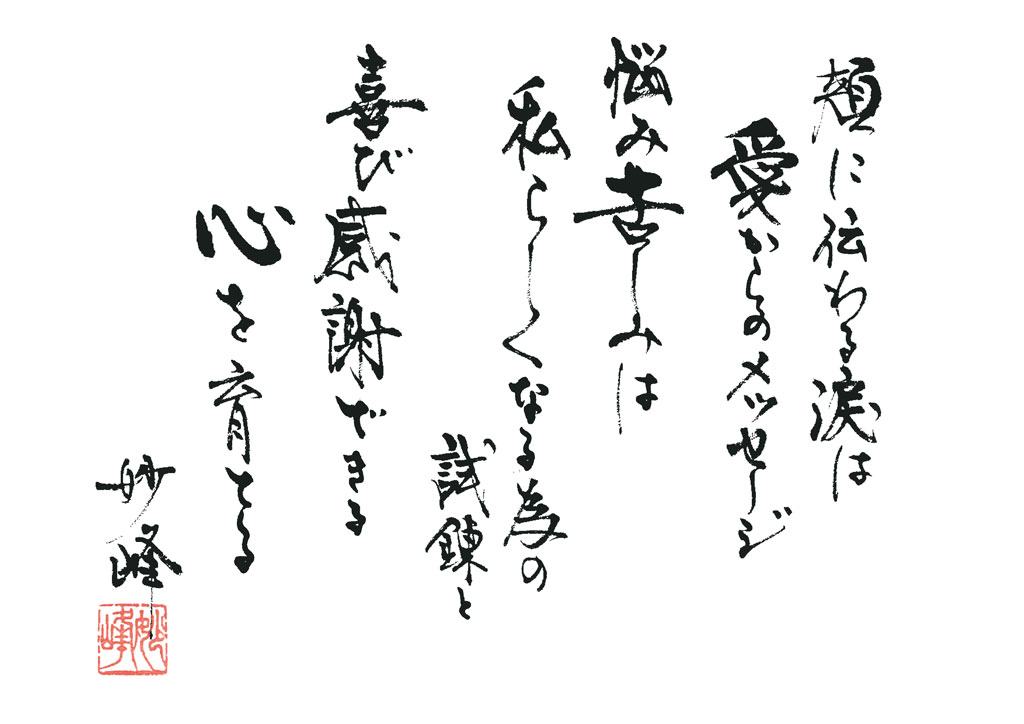 頬に伝わる涙は
愛からのメッセージ
悩み苦しみは
私らしくなる為の
試錬と
喜び感謝できる
心を育てる
妙峰
妙峰